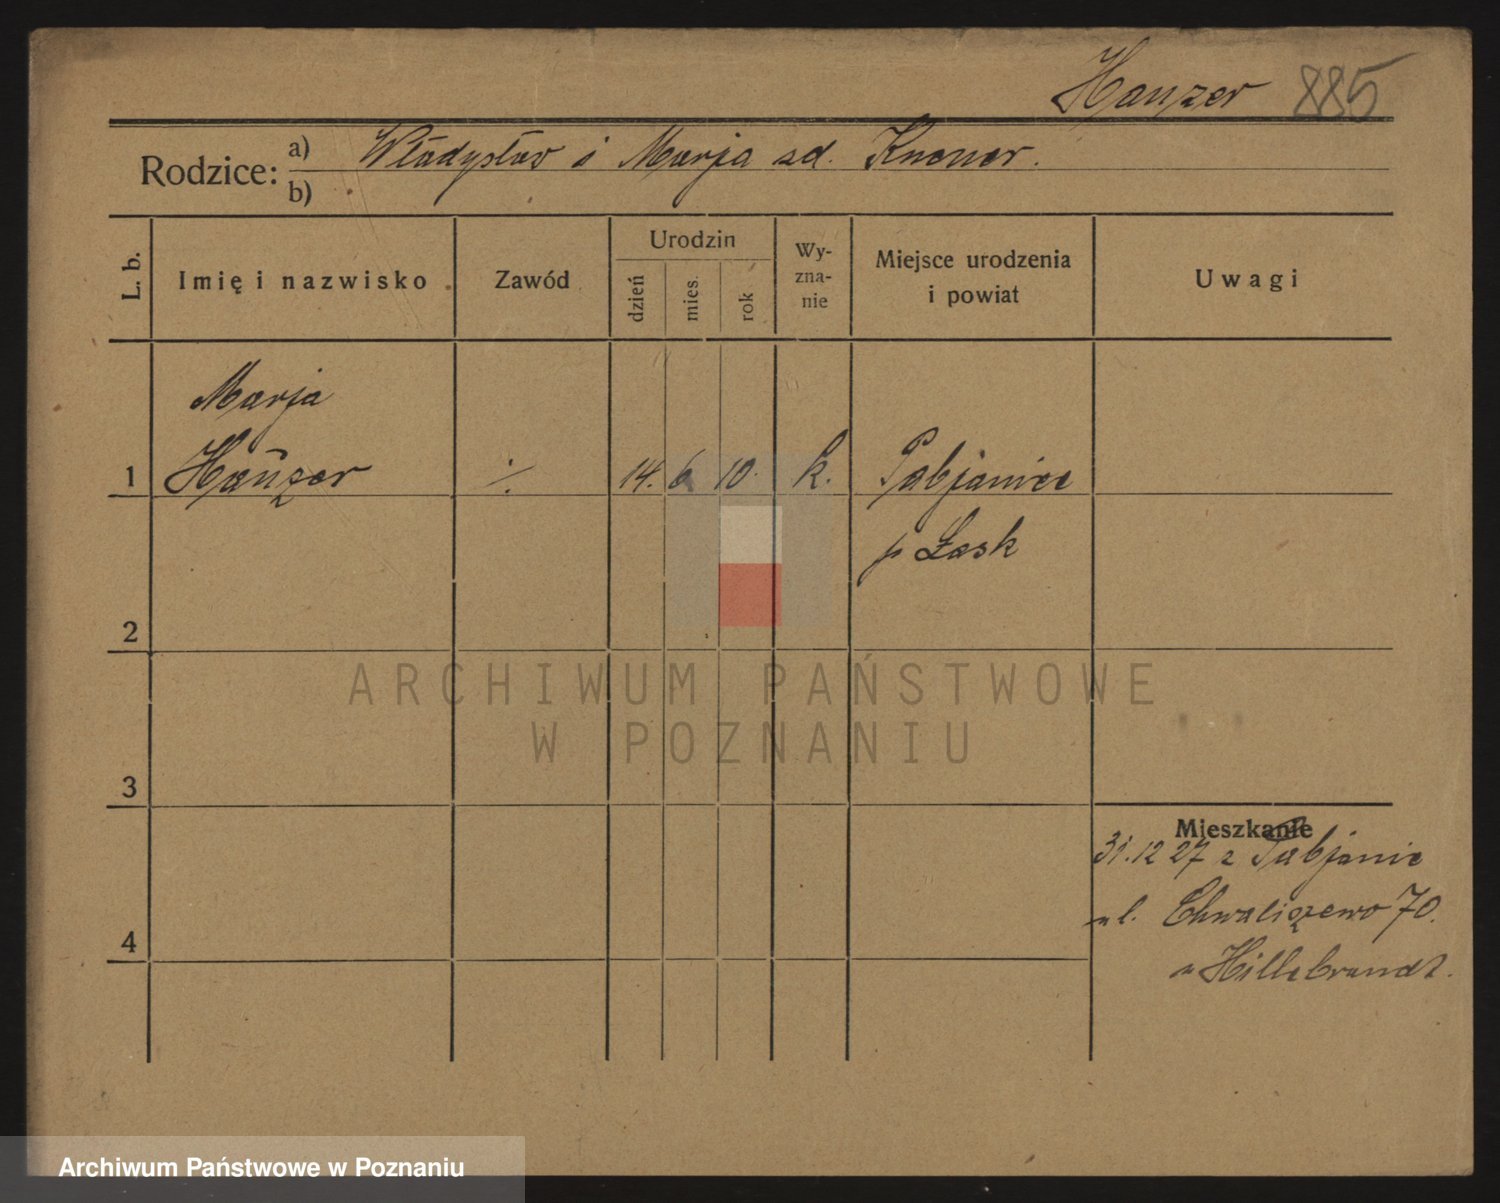 Hauzer 885
Rodzice: a) Władysław i Marja zd. Knener.
b)
L. b.
Imię i nazwisko
Zawód
Urodzin
dzień
mies.
rok
Wy-
zna-
nie
Miejsce urodzenia
i powiat
Uwagi
Marja
1 Hauzer ./. 14. 6 10. k. Pabjanice
p Łask
2
ARCHIWUM PAŃSTWOWE
W POZNANIU
3
Mieszkanie
31.12 27 z Pabjanic
4
ul. Chwaliszewo 70.
u Hillebrandt.
Archiwum Państwowe w Poznaniu